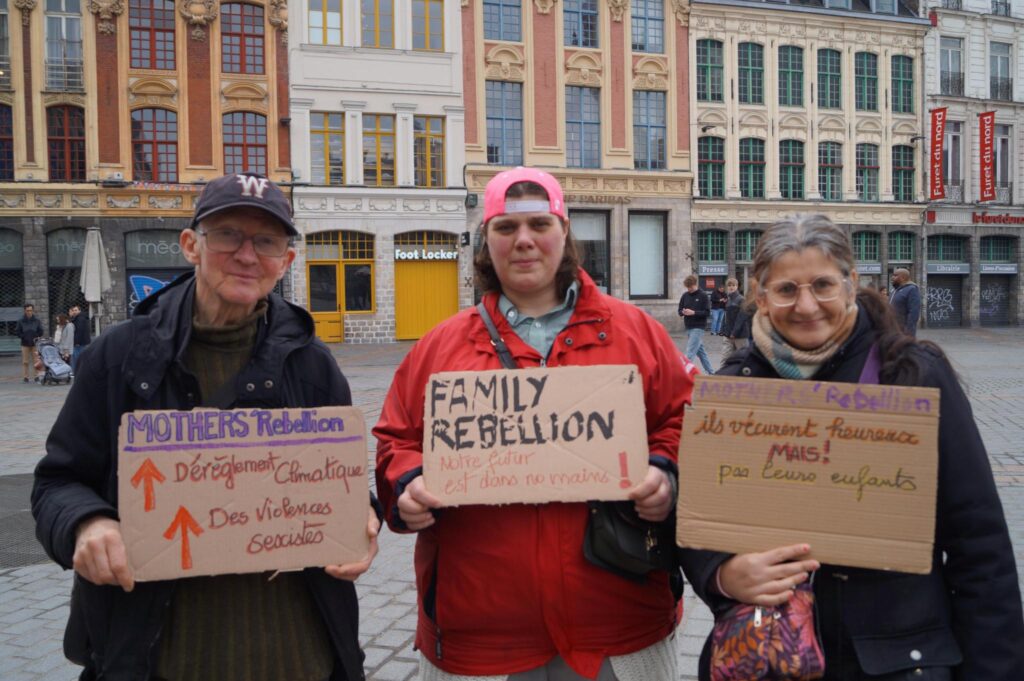 méo
méo
W
Foot Locker
PARIBAS
PRESSE
LIBRAIRIE
Furet du nord
Furet du nord
MOTHERS' Rebellion
Dérèglement Climatique
Des violences
sexistes
FAMILY
REBELLION
Notre futur
est dans no mains !
MOTHERS' Rebellion
ils vécurent heureux
MAIS!
pas leurs enfants